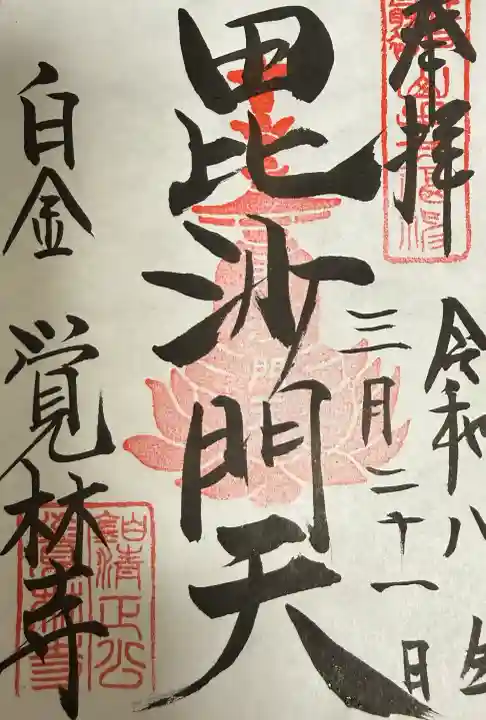 奉拝
令和八年
三月二十一日
毘沙門天
白金 覚林寺
白金
清正公
覚林寺